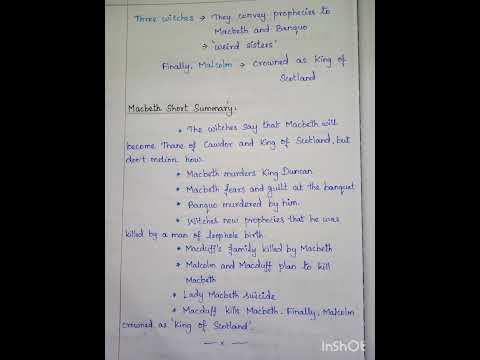 Three witches → They convey prophecies to
Macbeth and Banquo
→ 'weird sisters'
Finally, Malcolm → Crowned as King of
Scotland
Macbeth Short Summary:
* The witches say that Macbeth will
become Thane of Cawdor and King of Scotland, but
don't metion how.
* Macbeth murders King Duncan
* Macbeth fears and guilt at the banquet
* Banquo murdered by him.
* Witches new prophecies that he was
killed by a man of loophole birth.
* Macduff's family killed by Macbeth
* Malcolm and Macduff plan to kill
Macbeth
* Lady Macbeth suicide
* Macduff kills Macbeth. Finally, Malcolm
crowned as 'King of Scotland'.
— x —
InShOt